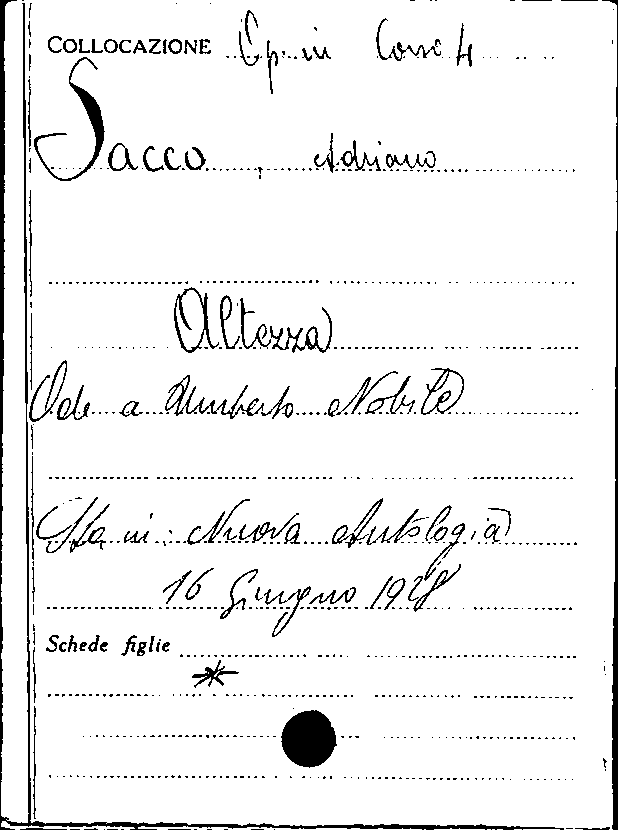 COLLOCAZIONE Op. in Corso 4
Sacco, Adriano
Altezza
Ode a Umberto Nobile
Sta in: Nuova Antologia
16 Giugno 1928
Schede figlie
*